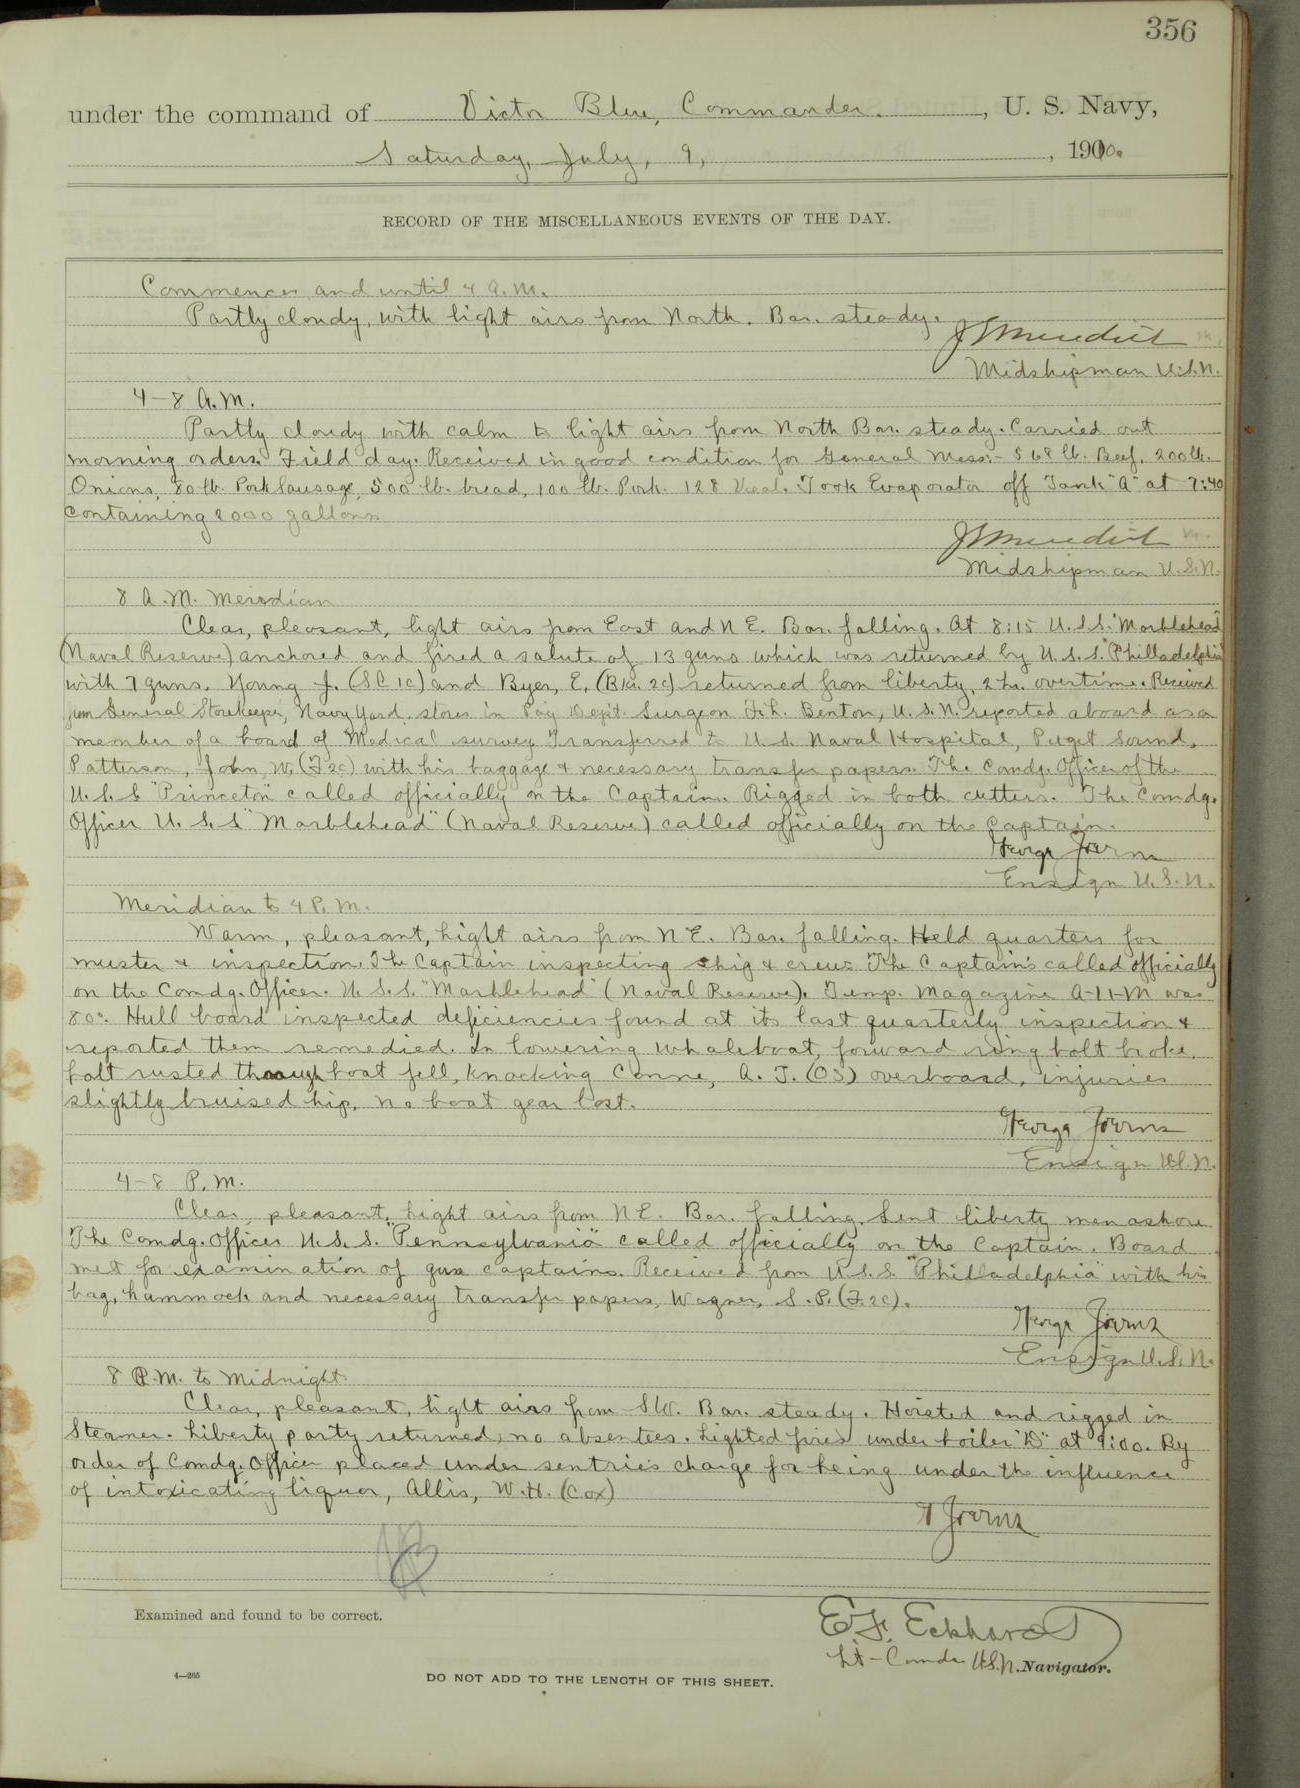 356
under the command of Victor Blue, Commander. , U. S. Navy,
Saturday, July, 9, , 1910.
RECORD OF THE MISCELLANEOUS EVENTS OF THE DAY.
Commences and until 4 A.M.
Partly cloudy, with light airs from North. Bar. steady.
Midshipman U.S.N.
4-8 A.M.
Partly cloudy with calm to light airs from North Bar. steady. Carried out
morning orders. Field day. Received in good condition for General Mess:- 568 lb. Beef, 200 lb.
Onions, 80 lb. Pork Sausage, 500 lb. bread, 100 lb. Pork. 128 Veal. Took Evaporator off Tank "A" at 7:40
containing 2000 gallons
Midshipman U.S.N.
8 A.M. Meridian
Clear, pleasant, light airs from East and N E. Bar. falling. At 8:15 U.S.S. "Marblehead"
(Naval Reserve) anchored and fired a salute of 13 guns which was returned by U.S.S. "Philladelphia"
with 7 guns. Young J. (SC 1c) and Byer, E. (Bkr. 2c) returned from liberty, 2 hr. overtime. Received
from General Storekeeper, Navy Yard. stores in Pay Dept. Surgeon F.L. Benton, U.S.N. reported aboard as a
member of a board of Medical survey Transferred to U.S. Naval Hospital, Puget Sound,
Patterson, John, W. (F2c) with his baggage & necessary transfer papers. The Comdg. Officer of the
U.S.S "Princeton" called officially on the Captain. Rigged in both cutters. The Comdg.
Officer U.S.S "Marblehead" (Naval Reserve) called officially on the Captain.
George
Ensign U.S.N.
Meridian to 4 P.M.
Warm, pleasant, light airs from N E. Bar. falling. Held quarters for
muster & inspection. The Captain inspecting ship & crew. The Captain's called officially
on the Comdg. Officer. U.S.S. "Marblehead" (Naval Reserve). Temp. Magazine A-11-M was
80°. Hull board inspected deficiencies found at its last quarterly inspection &
reported them remedied. In lowering whaleboat, forward ring bolt broke,
bolt rusted through boat fell, knocking Conne, A. J. (OS) overboard, injuries
slightly bruised hip. No boat gear lost.
George
Ensign U.S.N.
4-8 P.M.
Clear, pleasant, light airs from N E. Bar. falling. Sent liberty men ashore
The Comdg. Officer U.S.S. "Pennsylvania" called officially on the Captain. Board
met for examination of gun captains. Received from U.S.S. "Philladelphia" with his
bag, hammock and necessary transfer papers, Wagner, S. P. (F.2c).
George
Ensign U.S.N.
8 P.M. to Midnight
Clear, pleasant, light airs from SW. Bar. steady. Hoisted and rigged in
Steamer. Liberty party returned, no absentees. Lighted fires under boiler "D" at 9:00. By
order of Comdg. Officer placed under sentries charge for being under the influence
of intoxicating liquor, Allis, W.H. (Cox)
Examined and found to be correct.
E.F. Eckhardt
Lt-Comdr U.S.N. Navigator.
4—265
DO NOT ADD TO THE LENGTH OF THIS SHEET.